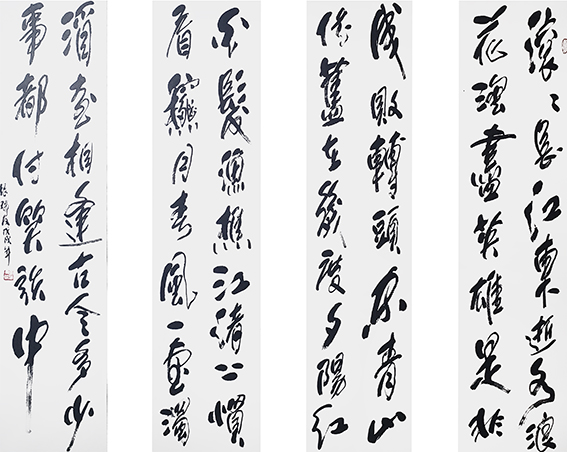 滚〻長江東逝水浪
花淘盡英雄是非
成敗轉頭空青山
依舊在幾度夕陽紅
白髮漁樵江渚上慣
看龝月春風一壺濁
酒喜相逢古今多少
事都付笑談中
戊戌年